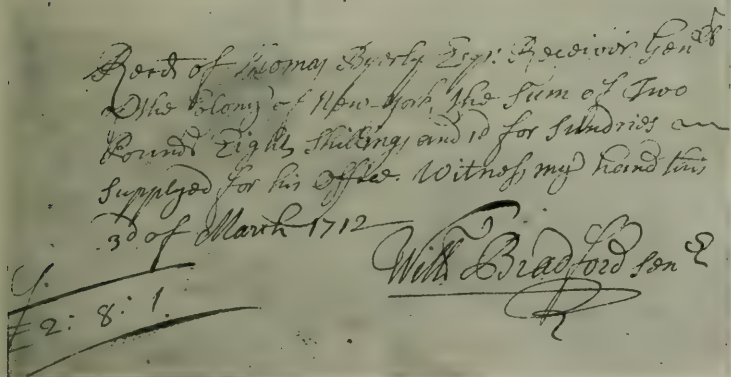 Recd of Thomas Byerly Esqr: Receivor Genll
of the Colony of New-York, the Sum of Two
Pounds Eight Shillings and 1d for Sundries
Supplyed for his Office. Witness my hand this
3d of March 1712
Will Bradford Senr
£ 2: 8: 1